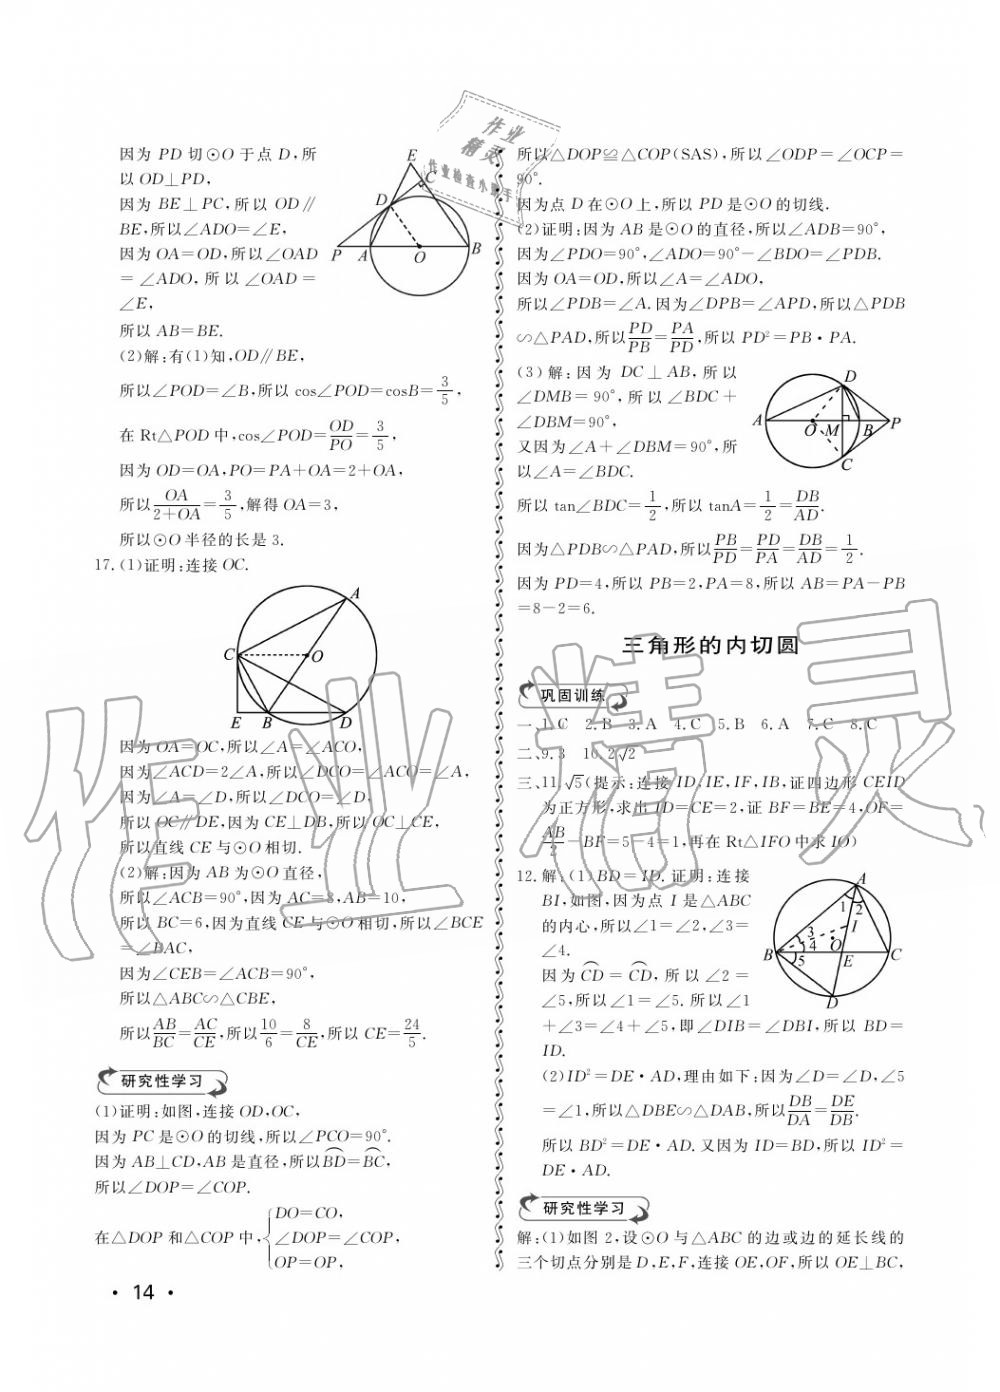 因为 PD 切⊙O 于点 D,所
以 OD⊥PD,
因为 BE⊥PC,所以 OD∥
BE,所以∠ADO=∠E,
因为 OA=OD,所以∠OAD
=∠ADO, 所 以 ∠OAD =
∠E,
所以 AB=BE.
(2)解:有(1)知,OD∥BE,
所以∠POD=∠B,所以 cos∠POD=cosB=3/5,
在 Rt△POD 中,cos∠POD=OD/PO=3/5,
因为 OD=OA,PO=PA+OA=2+OA,
所以OA/(2+OA)=3/5,解得 OA=3,
所以⊙O 半径的长是 3.
E
C
D
P A O B
17.(1)证明:连接 OC.
A
C O
E B D
因为 OA=OC,所以∠A=∠ACO,
因为∠ACD=2∠A,所以∠DCO=∠ACO=∠A,
因为∠A=∠D,所以∠DCO=∠D,
所以 OC∥DE,因为 CE⊥DB,所以 OC⊥CE,
所以直线 CE 与⊙O 相切.
(2)解:因为 AB 为⊙O 直径,
所以∠ACB=90°,因为 AC=8,AB=10,
所以 BC=6,因为直线 CE 与⊙O 相切,所以∠BCE
=∠BAC,
因为∠CEB=∠ACB=90°,
所以△ABC∽△CBE,
所以AB/BC=AC/CE,所以10/6=8/CE,所以 CE=24/5.
研究性学习
(1)证明:如图,连接 OD,OC,
因为 PC 是⊙O 的切线,所以∠PCO=90°.
因为 AB⊥CD,AB 是直径,所以B͡D=B͡C,
所以∠DOP=∠COP.
DO=CO,
在△DOP 和△COP 中,{∠DOP=∠COP,
OP=OP,
· 14 ·
作业
精灵
作业检查小助手
所以△DOP≌△COP(SAS),所以∠ODP=∠OCP=
90°.
因为点 D 在⊙O 上,所以 PD 是⊙O 的切线.
(2)证明:因为 AB 是⊙O 的直径,所以∠ADB=90°,
因为∠PDO=90°,∠ADO=90°-∠BDO=∠PDB.
因为 OA=OD,所以∠A=∠ADO,
所以∠PDB=∠A.因为∠DPB=∠APD,所以△PDB
∽△PAD,所以PD/PB=PA/PD,所以 PD²=PB·PA.
(3) 解: 因 为 DC ⊥ AB, 所 以
∠DMB = 90°, 所 以 ∠BDC +
∠DBM=90°,
又因为∠A+∠DBM=90°,所
以∠A=∠BDC.
D
A O M B P
C
所以 tan∠BDC=1/2,所以 tanA=1/2=DB/AD.
因为△PDB∽△PAD,所以PB/PD=PD/PA=DB/AD=1/2.
因为 PD=4,所以 PB=2,PA=8,所以 AB=PA-PB
=8-2=6.
三角形的内切圆
巩固训练
一、1.C 2.B 3.A 4.C 5.B 6.A 7.C 8.C
二、9.3 10.2√2
三、11.√5(提示:连接 ID,IE,IF,IB,证四边形 CEID
为正方形,求出 ID=CE=2,证 BF=BE=4,OF=
AB/2-BF=5-4=1,再在 Rt△IFO 中求 IO)
12.解:(1)BD=ID.证明:连接
BI,如图,因为点 I 是△ABC
的内心,所以∠1=∠2,∠3=
∠4.
因 为 C͡D = C͡D, 所 以 ∠2 =
∠5,所以∠1=∠5.所以∠1
+∠3=∠4+∠5,即∠DIB=∠DBI,所以 BD=
ID.
A
1 2
I
3
4 O
B 5 E C
D
(2)ID²=DE·AD,理由如下:因为∠D=∠D,∠5
=∠1,所以△DBE∽△DAB,所以DB/DA=DE/DB.
所以 BD²=DE·AD.又因为 ID=BD,所以 ID²=
DE·AD.
研究性学习
解:(1)如图 2,设⊙O 与△ABC 的边或边的延长线的
三个切点分别是 D,E,F,连接 OE,OF,所以 OE⊥BC,
作业精灵